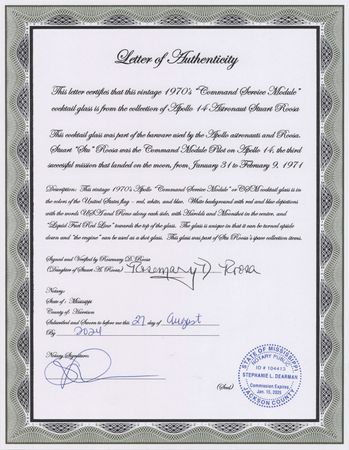 Letter of Authenticity
This letter certifies that this vintage 1970's "Command Service Module"
cocktail glass is from the collection of Apollo 14 Astronaut Stuart Roosa
This cocktail glass was part of the barware used by the Apollo astronauts and Roosa.
Stuart "Stu" Roosa was the Command Module Pilot on Apollo 14, the third
successful mission that landed on the moon, from January 31 to February 9, 1971
Description: This vintage 1970's Apollo "Command Service Module" or CSM cocktail glass is in
the colors of the United States flag – red, white, and blue. White background with red and blue depictions
with the words USA and Roosa along each side, with Aseolds and Moonshot in the center, and
"Liquid Fuel Red Line" towards the top of the glass. The glass is unique in that it can be turned upside
down and "the engine" can be used as a shot glass. This glass was part of Stu Roosa's space collection items.
Signed and Verified by Rosemary D. Roosa
(Daughter of Stuart A. Roosa) Rosemary D Roosa
Notary:
State of : Mississippi
County of: Harrison
Subscribed and Sworn to before me this 27 day of August
By 2024
Notary Signature:
(Seal)
STATE OF MISSISSIPPI
NOTARY PUBLIC
ID # 104413
STEPHANIE L. DEARMAN
Commission Expires
Jan. 10, 2025
JACKSON COUNTY